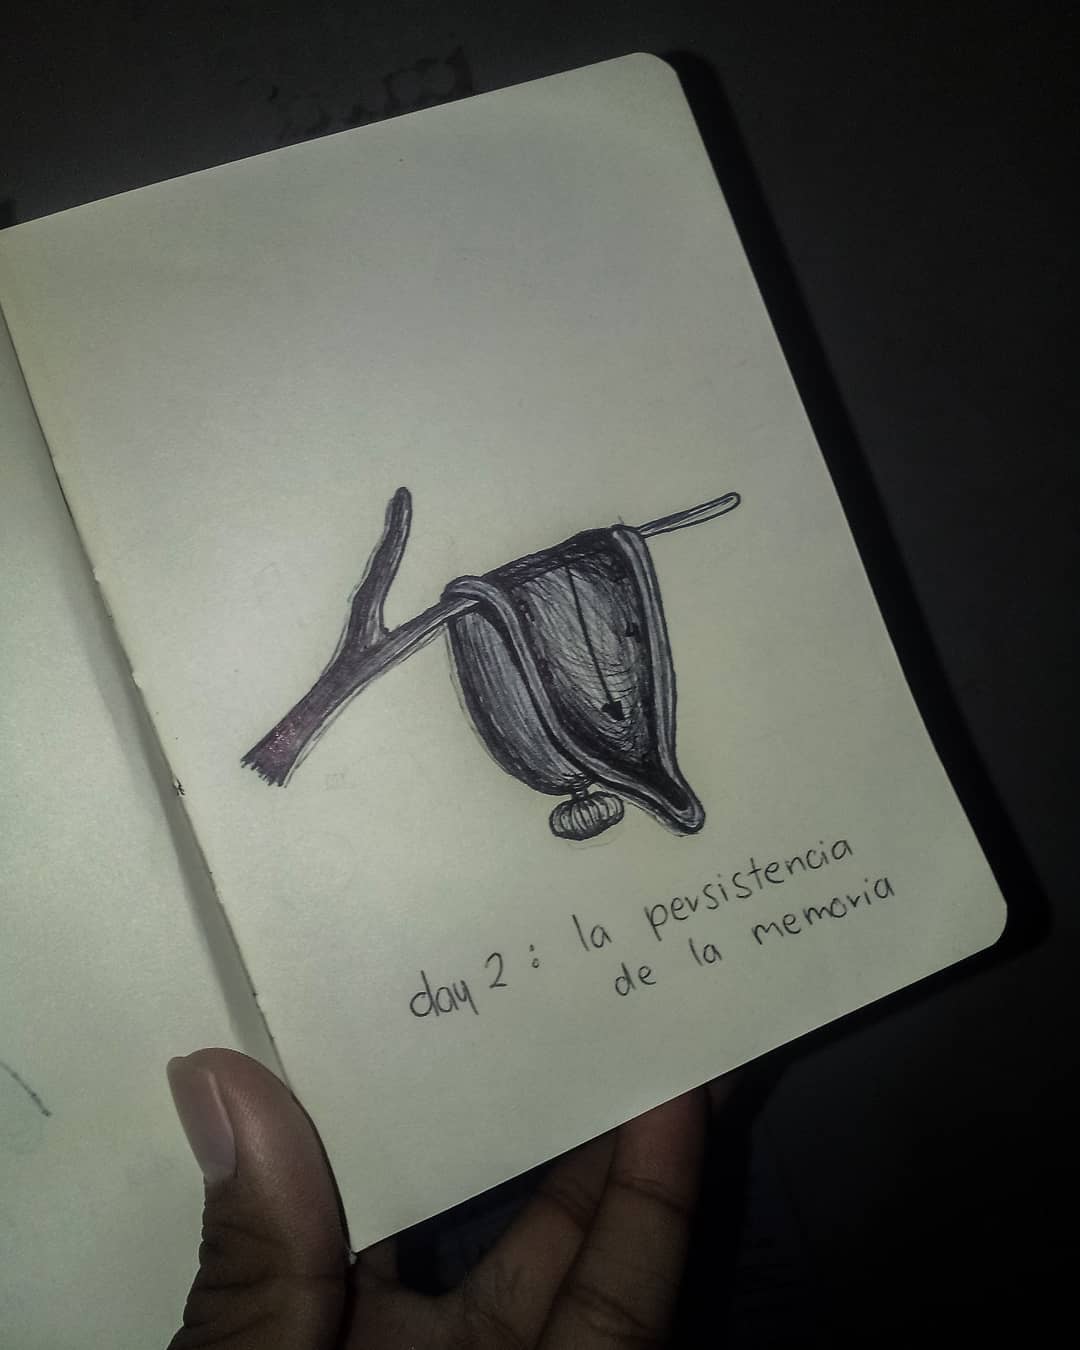 day 2: la persistencia
de la memoria